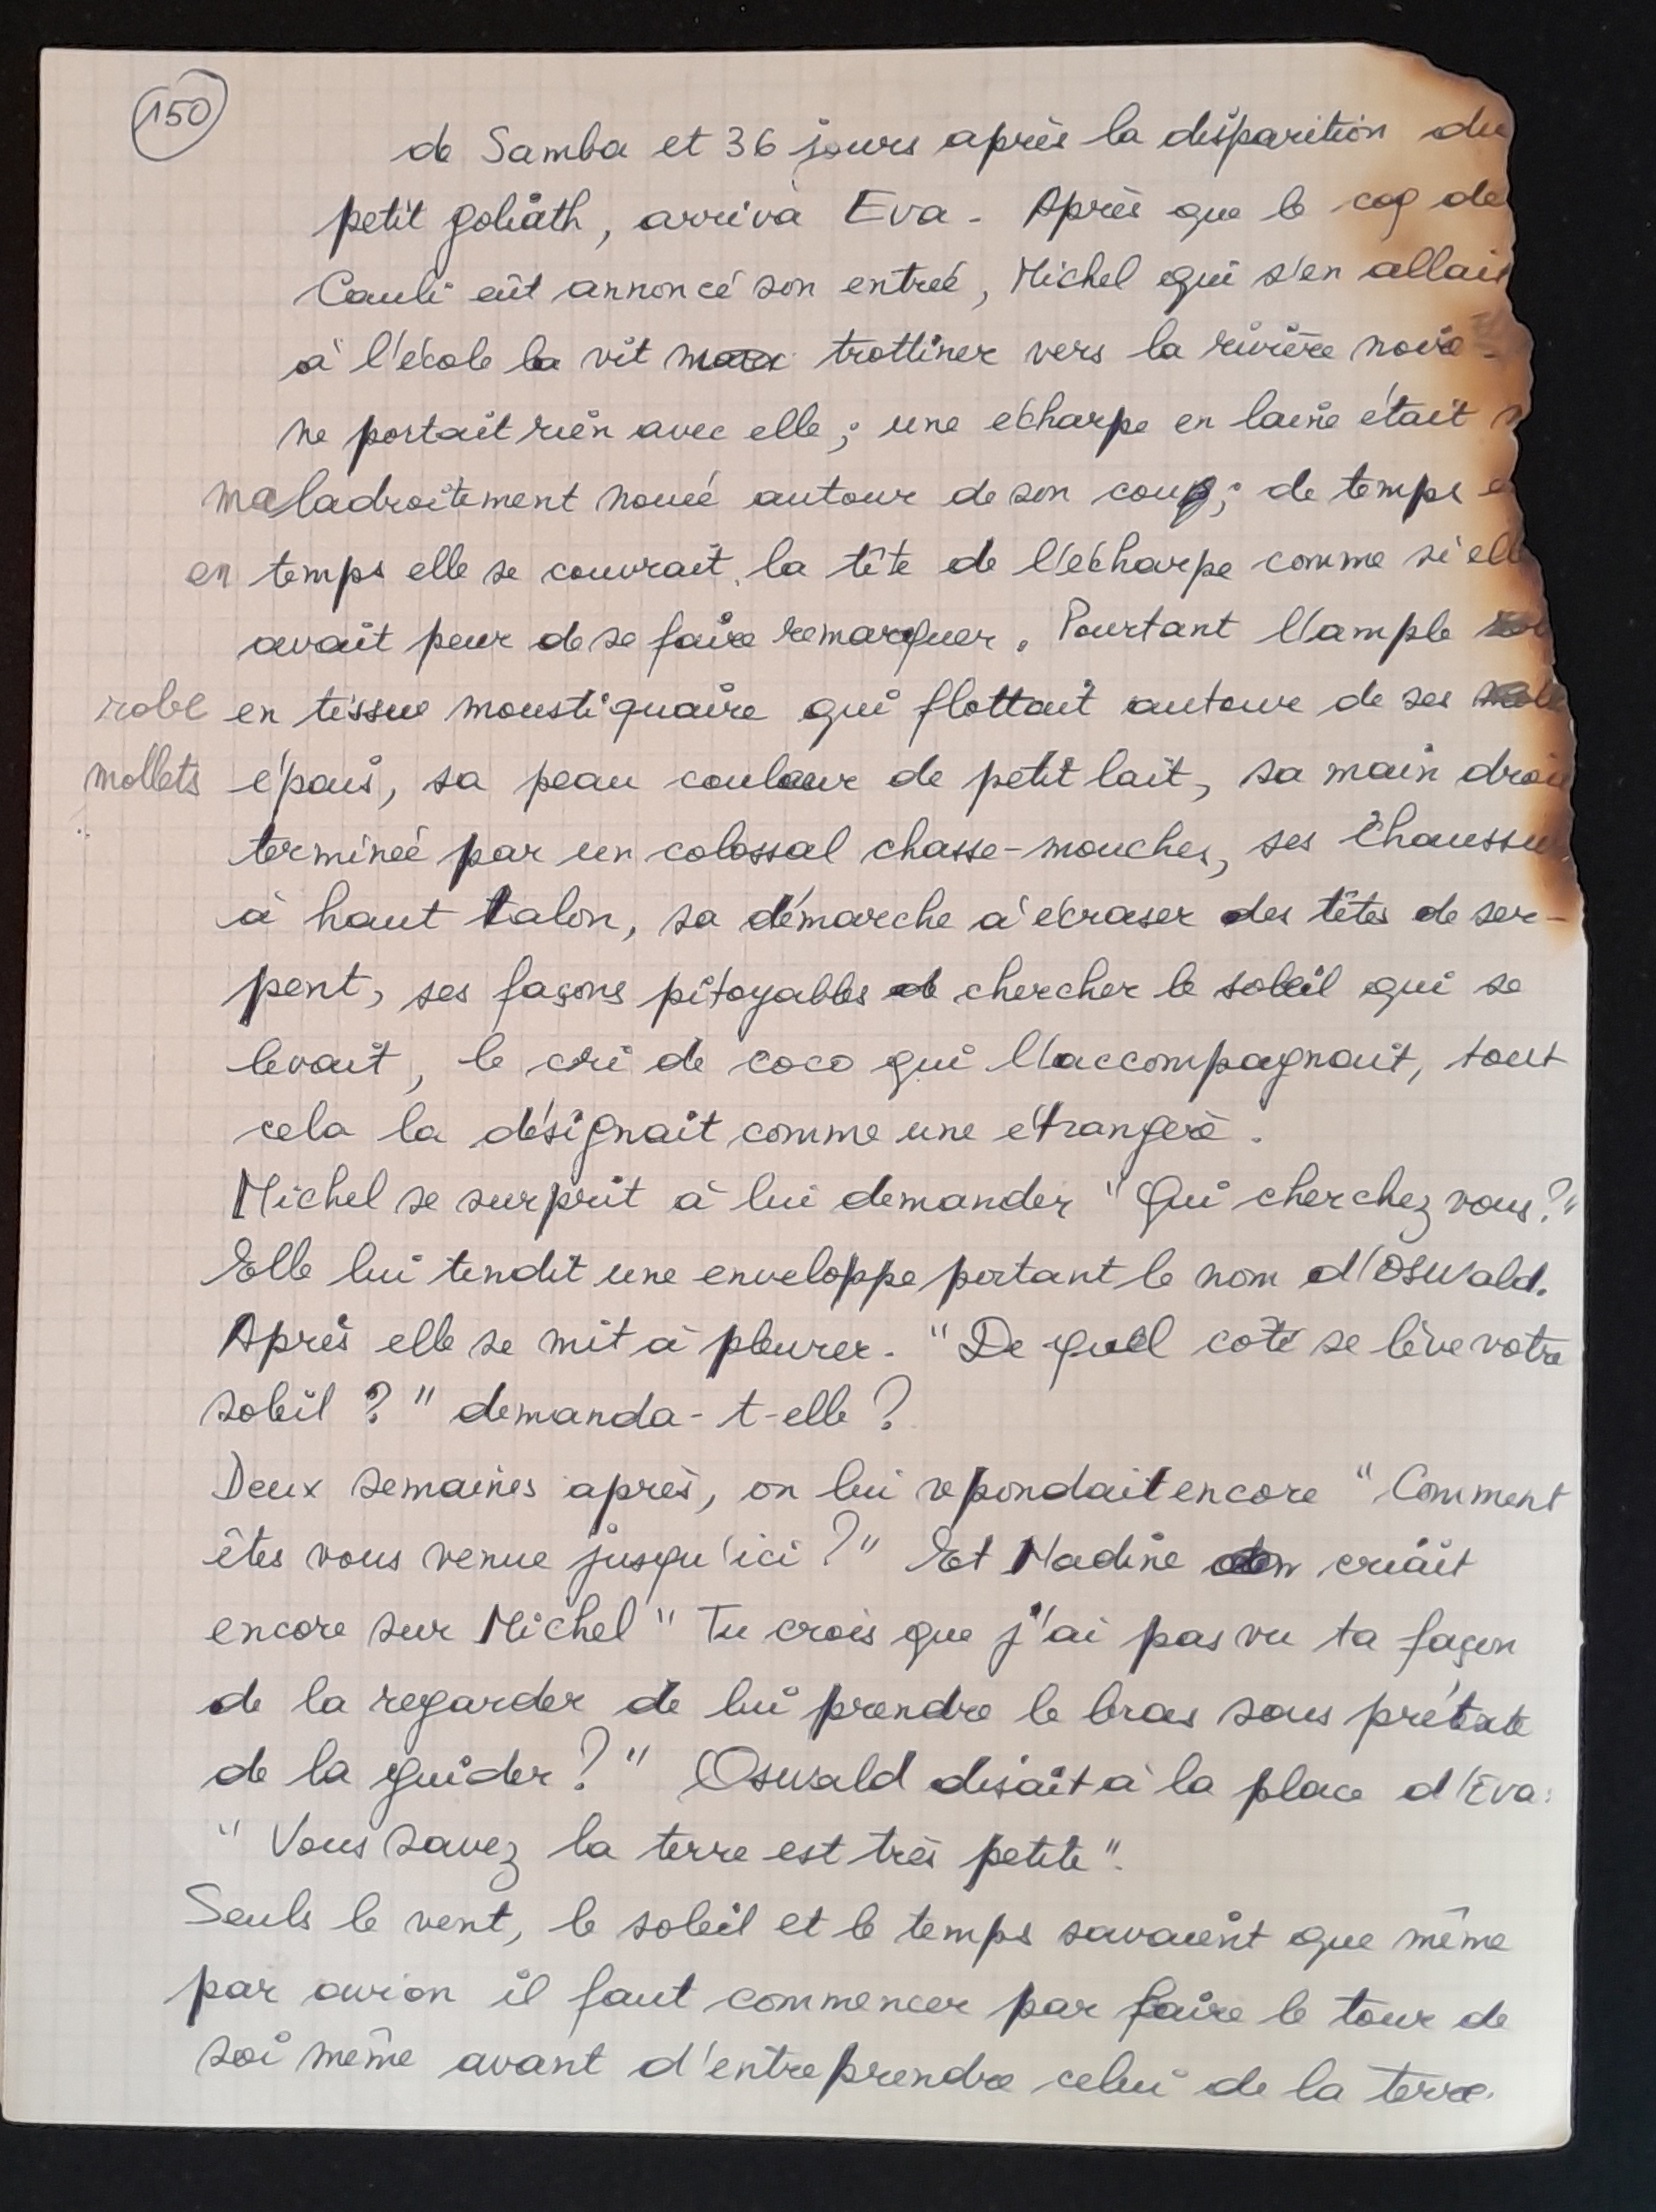 150
de Samba et 36 jours après la disparition du
petit goliath, arriva Eva. Après que le coq de
Cauli eût annoncé son entrée, Michel qui s'en allait
à l'école la vit trottiner vers la rivière noire
ne portait rien avec elle ; une écharpe en laine était
maladroitement nouée autour de son coup ; de temps
en temps elle se couvrait la tête de l'écharpe comme si elle
avait peur de se faire remarquer. Pourtant l'ample
robe en tissue moustiquaire qui flottait autour de ses
mollets épais, sa peau couleur de petit lait, sa main droi
terminée par un colossal chasse-mouches, ses chaussu
à haut talon, sa démarche à écraser des têtes de ser-
pent, ses façons pitoyables de chercher le soleil qui se
levait, le cri de coco qui l'accompagnait, tout
cela la désignait comme une étrangère.
Michel se surprit à lui demander "Qui cherchez vous ?"
Elle lui tendit une enveloppe portant le nom d'Oswald.
Après elle se mit à pleurer. "De quel coté se lève votre
soleil ?" demanda-t-elle ?
Deux semaines après, on lui répondait encore "Comment
êtes vous venue jusqu'ici ?" Et Nadine criait
encore sur Michel "Tu crois que j'ai pas vu ta façon
de la regarder de lui prendre le bras sous prétexte
de la guider ?" Oswald disait à la place d'Eva :
"Vous savez la terre est très petite".
Seuls le vent, le soleil et le temps savaient que même
par avion il faut commencer par faire le tour de
soi même avant d'entreprendre celui de la terre.